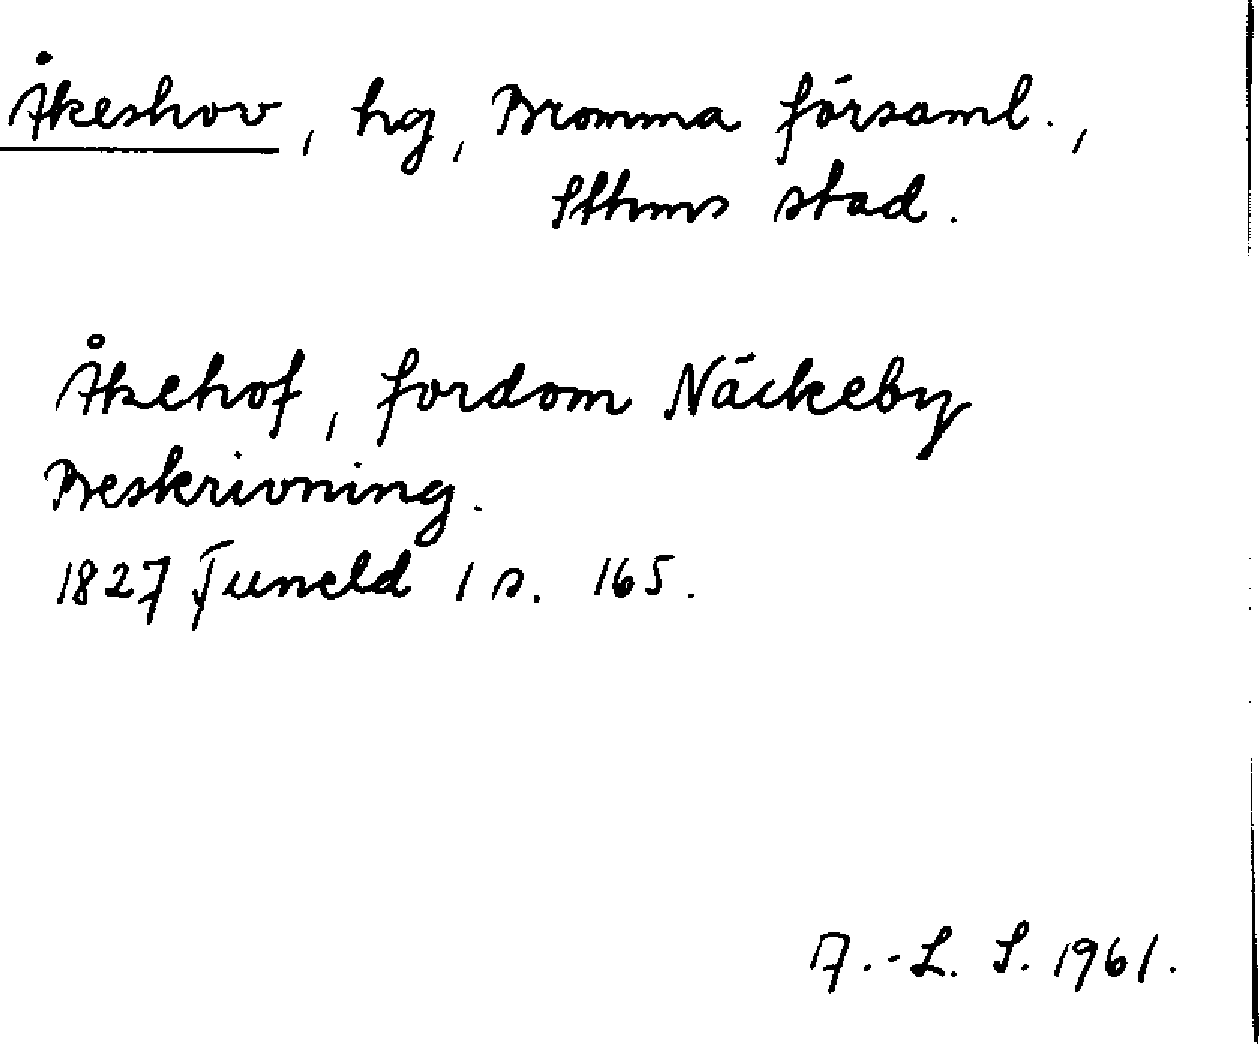 Åkeshov, hg, Bromma församl.,
Sthms stad.
Åkehof, fordom Näckeby
Beskrivning.
1827 Tuneld 1 s. 165.
A.-L. S. 1961.